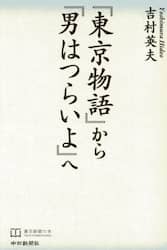 吉村英夫
Yoshimura Hideo
『東京物語』から
『男はつらいよ』へ
東京新聞の本
中日新聞社